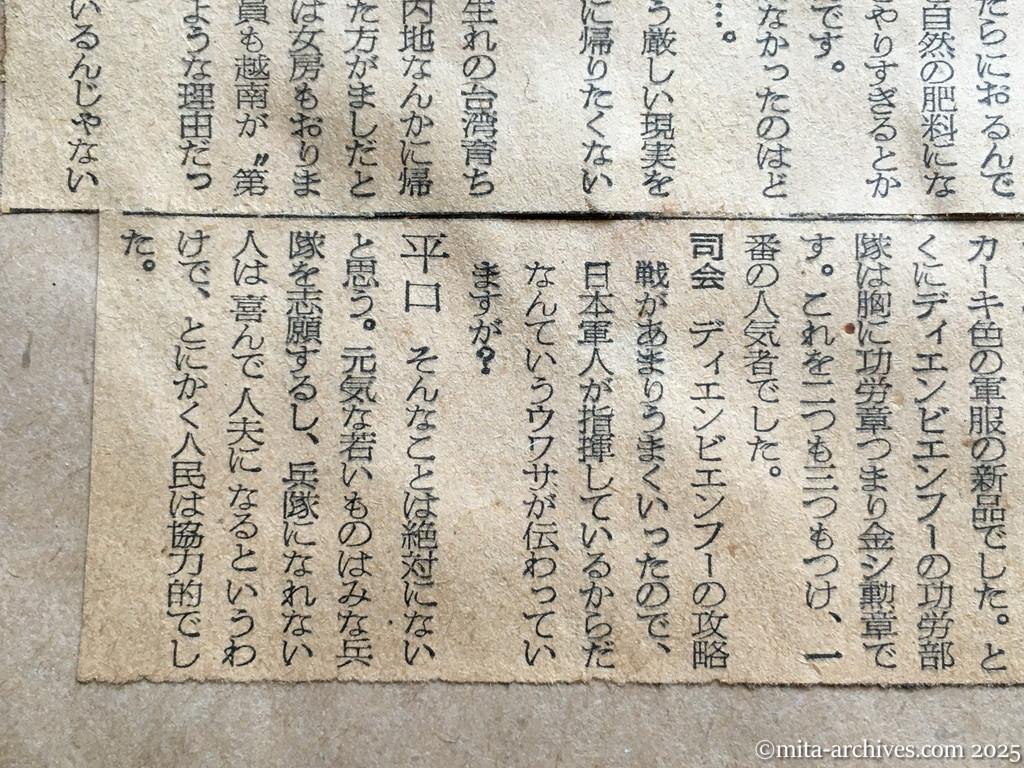 たらにおるんで
自然の肥料にな
やりすぎるとか
です。
なかったのはど
…。
う厳しい現実を
に帰りたくない
生れの台湾育ち
内地なんかに帰
た方がましだと
は女房もおりま
員も越南が〝第
ような理由だっ
いるんじゃない
カーキ色の軍服の新品でした。と
くにディエンビエンフーの功労部
隊は胸に功労章つまり金シ勲章で
す。これを二つも三つもつけ、一
番の人気者でした。
司会 ディエンビエンフーの攻略
戦があまりうまくいったので、
日本軍人が指揮しているからだ
なんていうウワサが伝わってい
ますが?
平口 そんなことは絶対にない
と思う。元気な若いものはみな兵
隊を志願するし、兵隊になれない
人は喜んで人夫になるというわ
けで、とにかく人民は協力的でし
た。
©mita-archives.com 2025